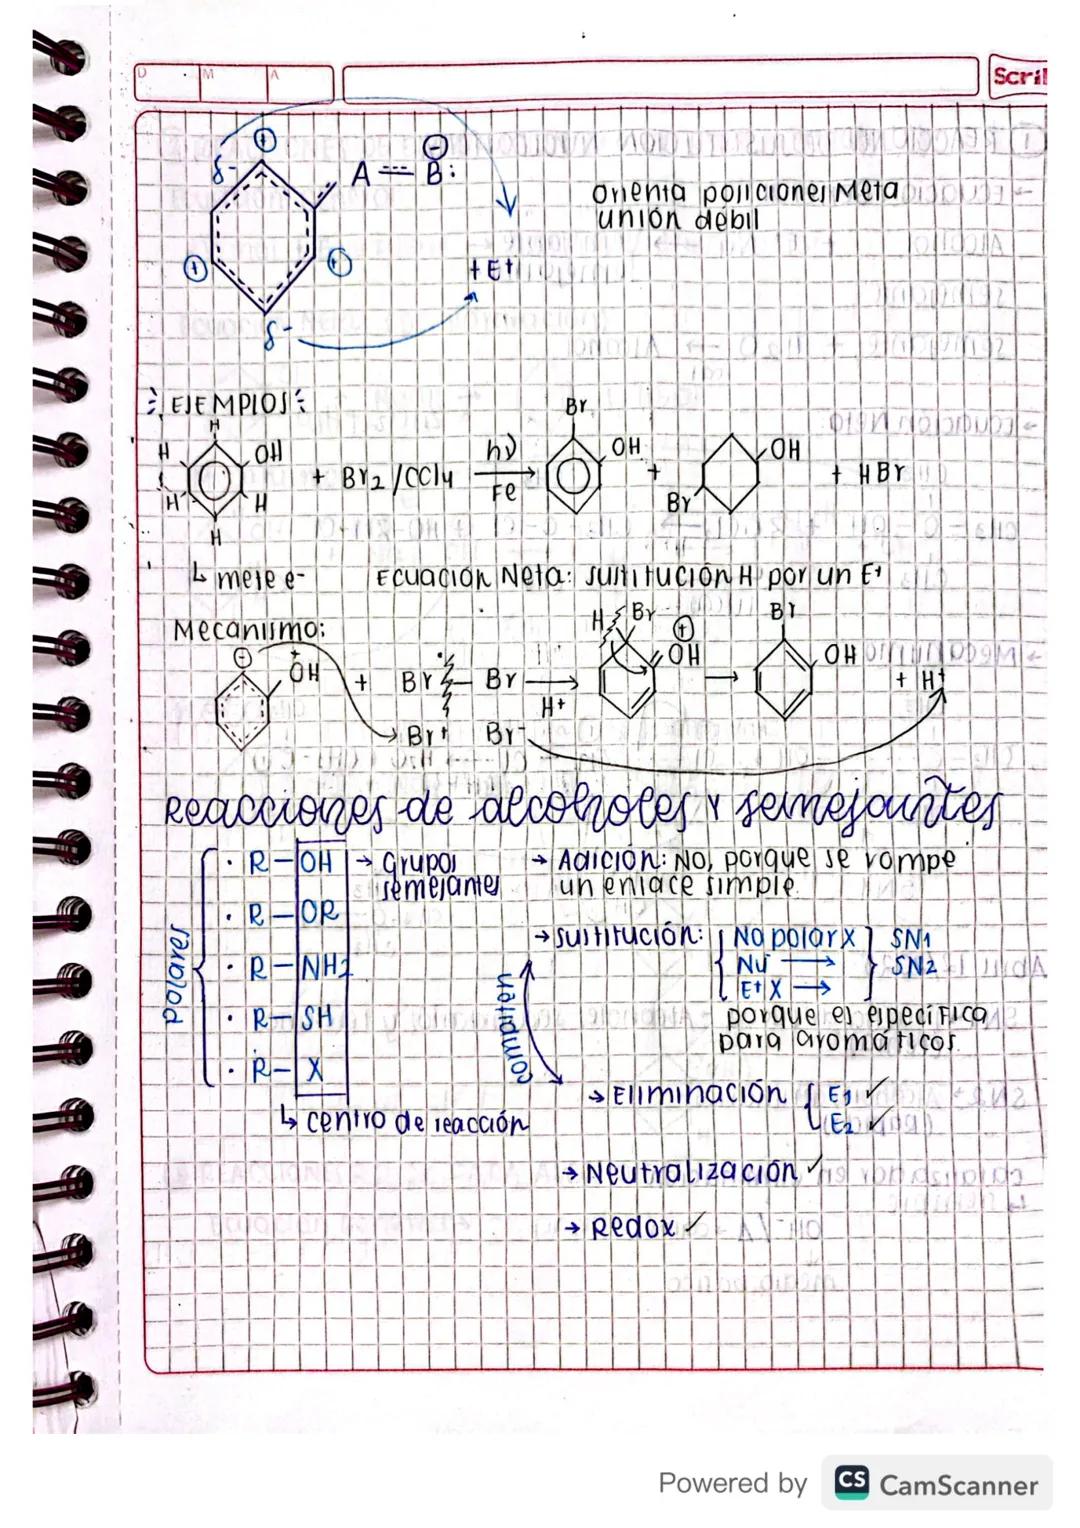 D M A
Scri
δ- ⊕ A B: ⊖
Orienta posiciones Meta
unión débil
⊕ ⊕ + E+
δ-
EJEMPLOS:
H H OH H H H + Br2/CCl4 hν Fe → Br OH + Br OH + HBr
↳ mete e- Ecuación Neta: sustitución H por un E+
Mecanismo:
⊖ + OH + Br - Br H+ → H Br ⊕ OH → Br OH + H+
Br+ Br-
Reacciones de alcoholes y semejantes
Polares
· R-OH → Grupos semejantes
· R-OR
· R-NH2
· R-SH
· R-X
↳ centro de reacción
→ Adición: NO, porque se rompe
un enlace simple
→ sustitución: No polar X SN1
Nu- → SN2
E+ X →
porque es específica
para aromáticos
compiten
→ Eliminación E1 ✓
E2 ✓
→ Neutralización ✓
→ Redox ✓
Powered by CS CamScanner